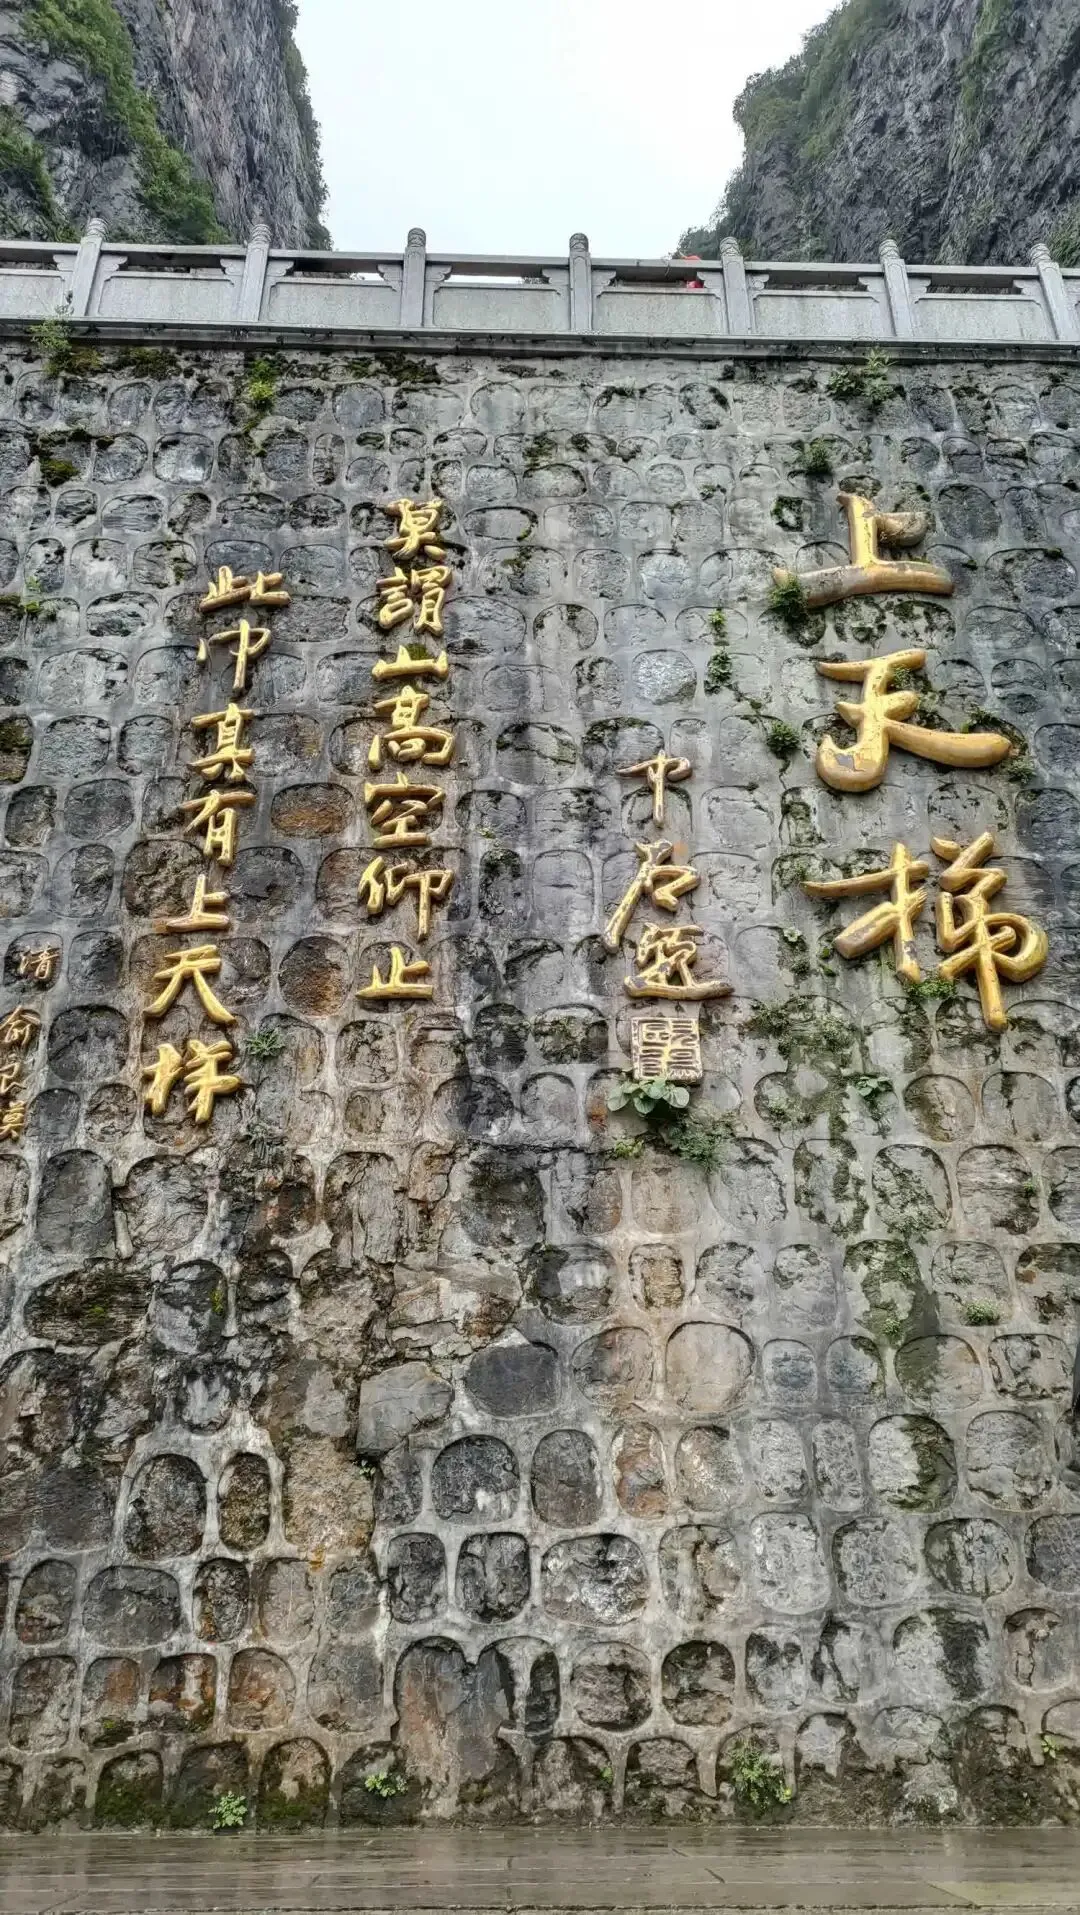 上天梯
中石題
莫謂山高空仰止
此中真有上天梯
清 俞良謨